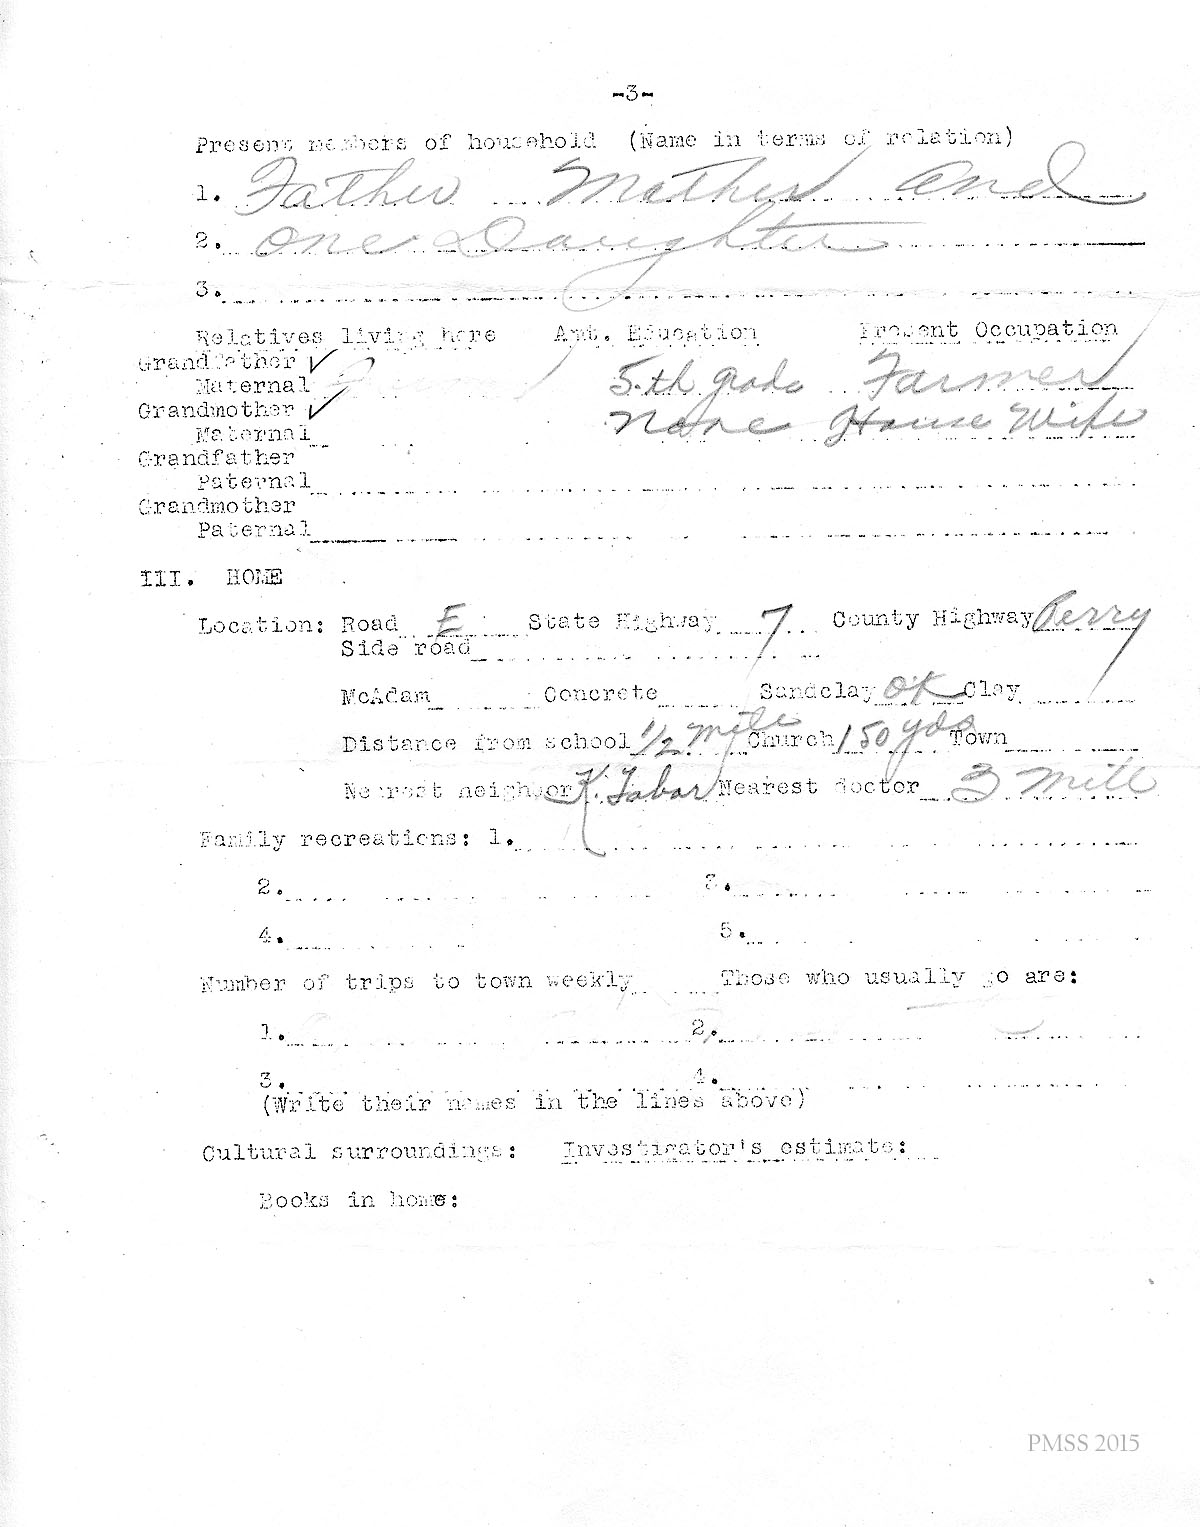 -3-
Present members of household (Name in terms of relation)
1. Father Mother and
2. one Daughter
3.
Relatives living here Amt. Education Present Occupation
Grandfather ✓
Maternal 5-th grade Farmer
Grandmother ✓
Maternal None House Wife
Grandfather
Paternal
Grandmother
Paternal
III. HOME
Location: Road E State Highway 7 County Highway Perry
Side road
McAdam Concrete Sandclay OK Clay
Distance from school 1/2 mile Church 150 yds Town
Nearest neighbor K. Tabor Nearest doctor 3 mile
Family recreations: 1.
2. 3.
4. 5.
Number of trips to town weekly Those who usually go are:
1. 2.
3. 4.
(Write their names in the lines above)
Cultural surroundings: Investigator's estimate:
Books in home:
PMSS 2015